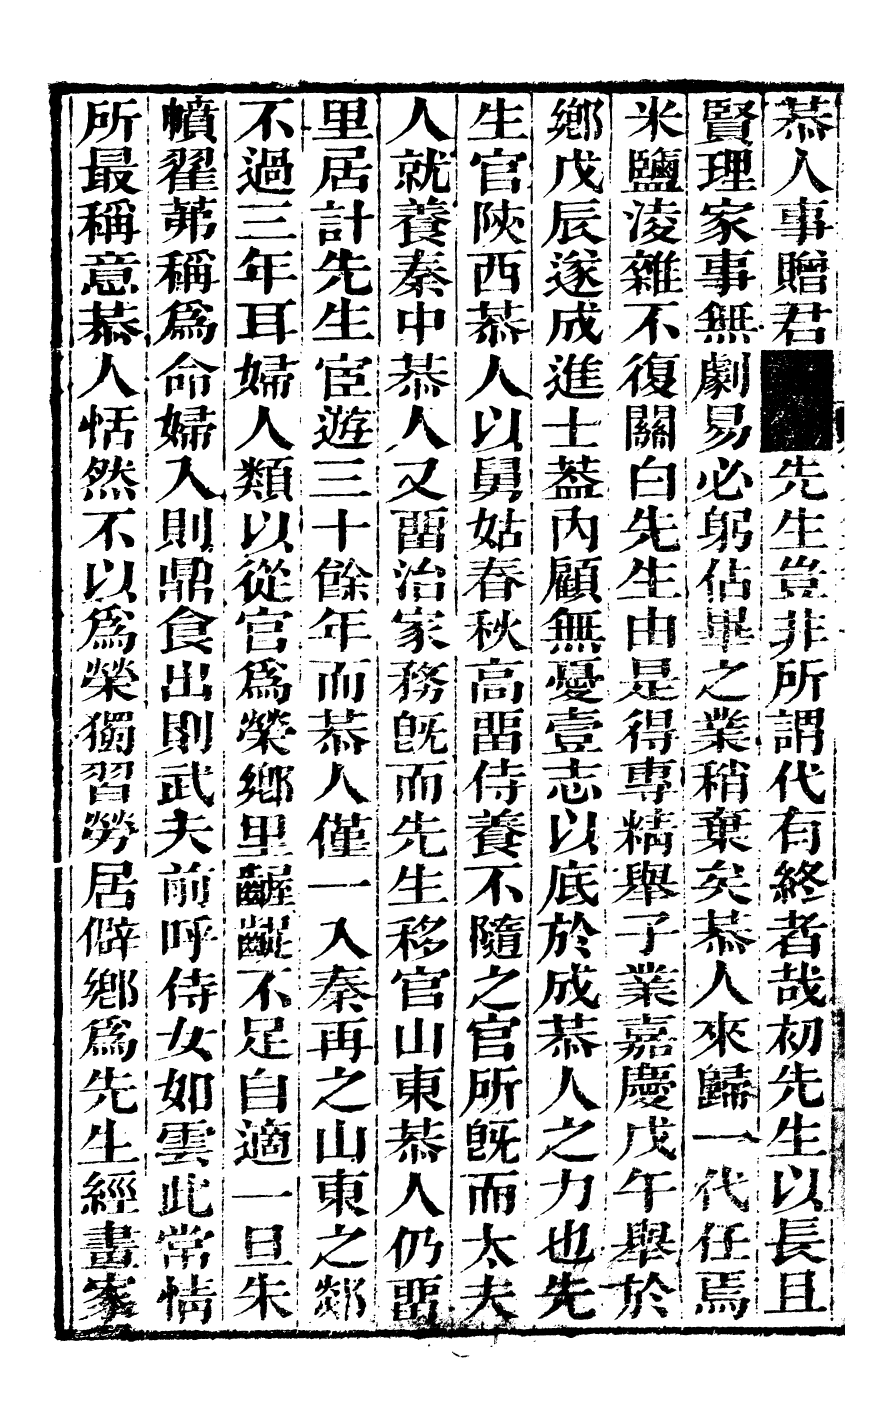 恭人事贈君先生豈非所謂代有終者哉初先生以長且
賢理家事無劇易必躬佔畢之業稍棄矣恭人來歸一代任焉
米鹽淩雜不復關白先生由是得專精舉子業嘉慶戊午舉於
鄉戊辰遂成進士蓋內顧無憂壹志以底於成恭人之力也先
生官陝西恭人以舅姑春秋高畱侍養不隨之官所旣而太夫
人就養秦中恭人又畱治家務旣而先生移官山東恭人仍畱
里居計先生宦遊三十餘年而恭人僅一入秦再之山東之郯
不過三年耳婦人類以從官爲榮鄉里齷齪不足自適一旦朱
幩翟茀稱爲命婦入則鼎食出則武夫前呼侍女如雲此常情
所最稱意恭人恬然不以爲榮獨習勞居僻鄉爲先生經畫家